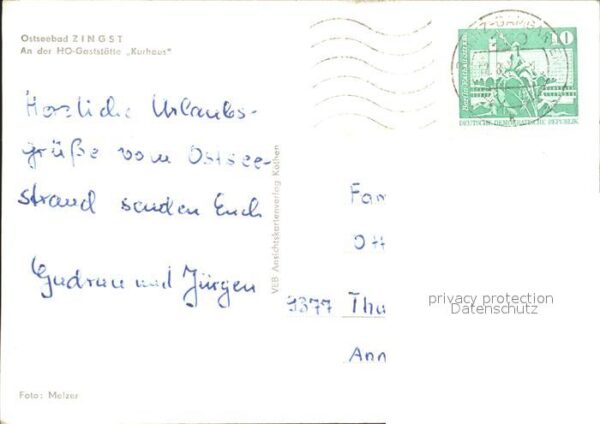 Ostseebad ZINGST
An der HO-Gaststätte „Kurhaus"
10
DEUTSCHE DEMOKRATISCHE REPUBLIK
Herzliche Urlaubs-
grüße vom Ostsee-
strand senden Euch
Gudrun und Jürgen
VEB Ansichtskartenverlag Köthen
Fam
Ott
9377 Tha
Ann
privacy protection
Datenschutz
Foto: Melzer